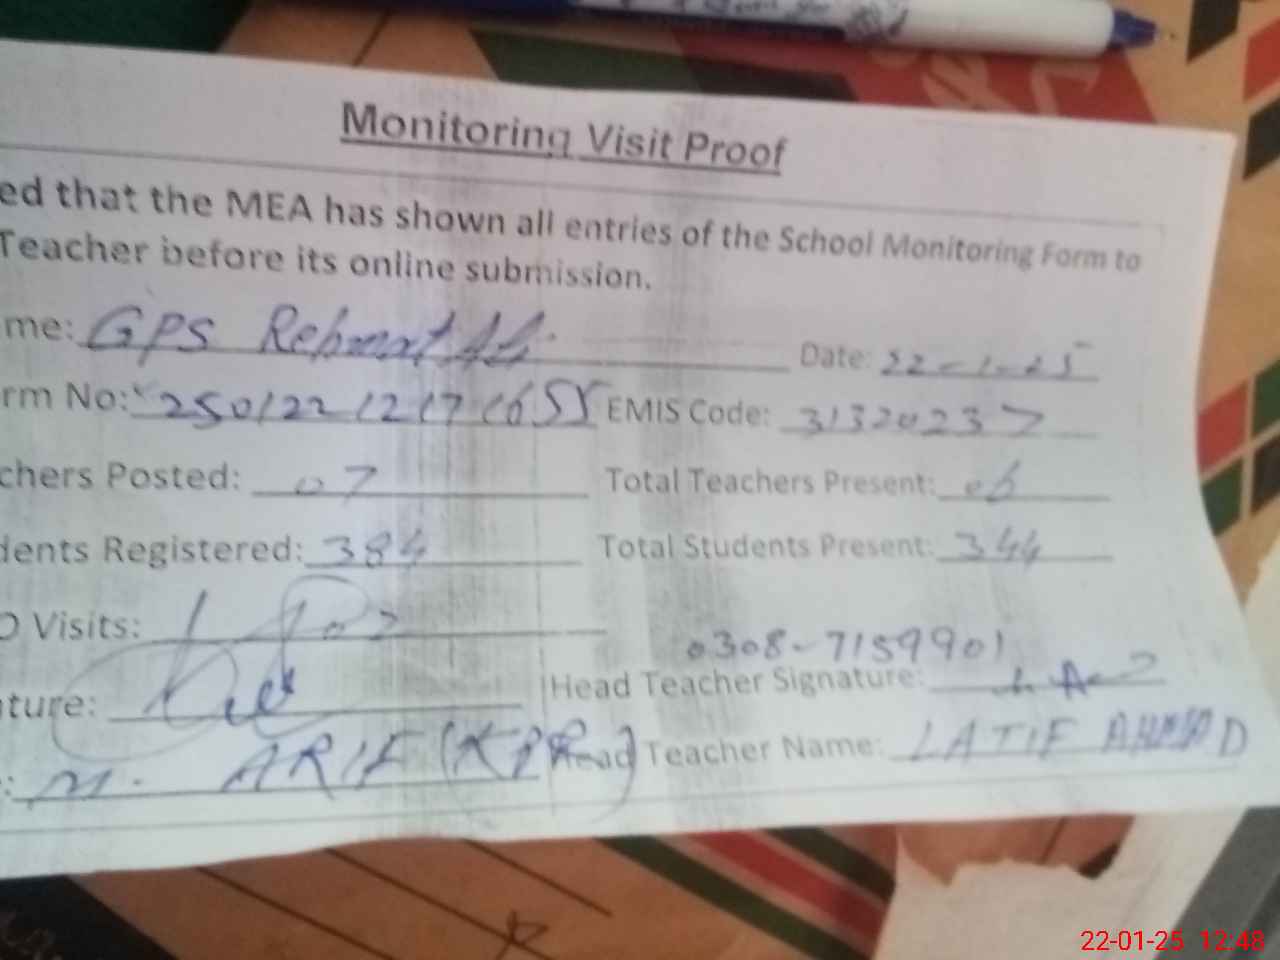 Monitoring Visit Proof
ed that the MEA has shown all entries of the School Monitoring Form to
Teacher before its online submission.
me: GPS Rehmat Ali Date: 22-1-25
rm No: EMIS Code: 31320237
chers Posted: 07 Total Teachers Present: 06
dents Registered: 384 Total Students Present: 344
O Visits:
0308-7159901
ture: Head Teacher Signature:
: M. ARIF Head Teacher Name: LATIF AHMAD
22-01-25 12:48